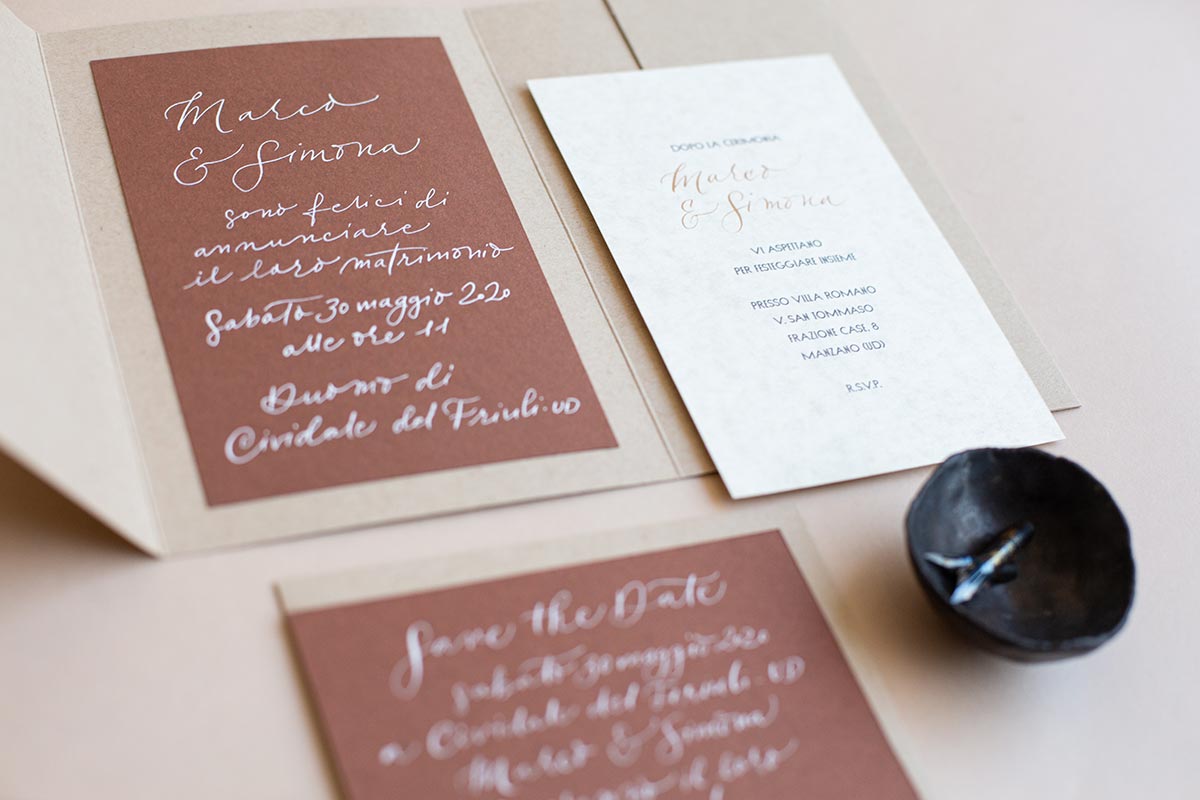 Marco
& Simona
sono felici di
annunciare
il loro matrimonio
Sabato 30 maggio 2020
alle ore 11
Duomo di
Cividale del Friuli·UD
DOPO LA CERIMONIA
Marco
& Simona
VI ASPETTANO
PER FESTEGGIARE INSIEME
PRESSO VILLA ROMANO
V. SAN TOMMASO
FRAZIONE CASE, 8
MANZANO (UD)
R.S.V.P.
Save the Date
sabato 30 maggio 2020
a Cividale del Friuli·UD
Marco & Simona
il loro